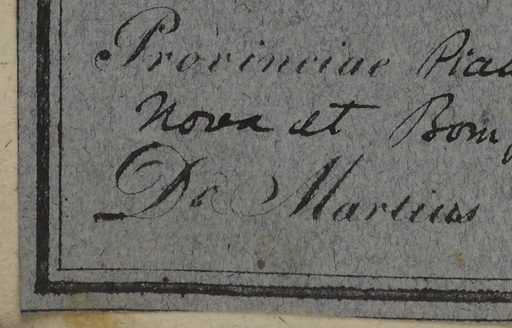 Provinciae Piau
Nova et Bom
Dr Martius